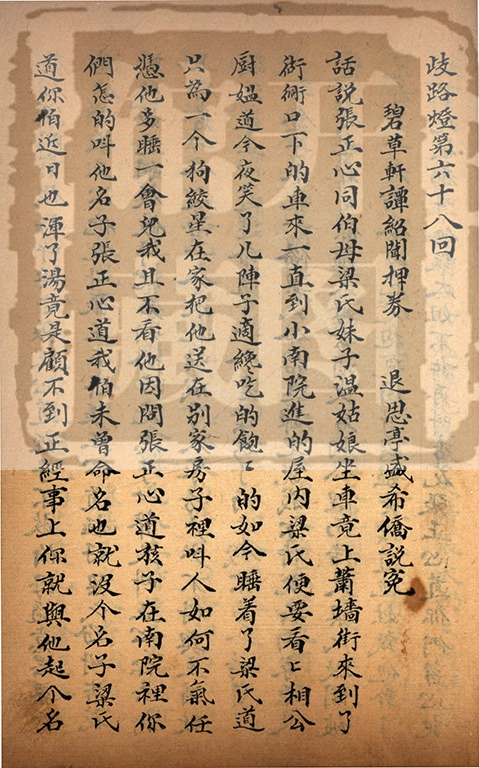 歧路燈第六十八回
碧草軒譚紹聞押券　退思亭盛希僑說冤
話說張正心同伯母梁氏妹子温姑娘坐車竟上蕭墻街來到了
衚衕口下的車來一直到小南院進的屋内梁氏便要看〻相公
厨媪道今夜笑了几陣子適纔吃的飽〻的如今睡着了梁氏道
只為一个狗絞星在家把他送在别家房子裡叫人如何不氣任
憑他多睡一會兒我且不看他因問張正心道孩子在南院裡你
們怎的叫他名子張正心道我伯未曾命名也就没个名子梁氏
道你伯近日也渾了湯竟是顧不到正經事上你就與他起个名